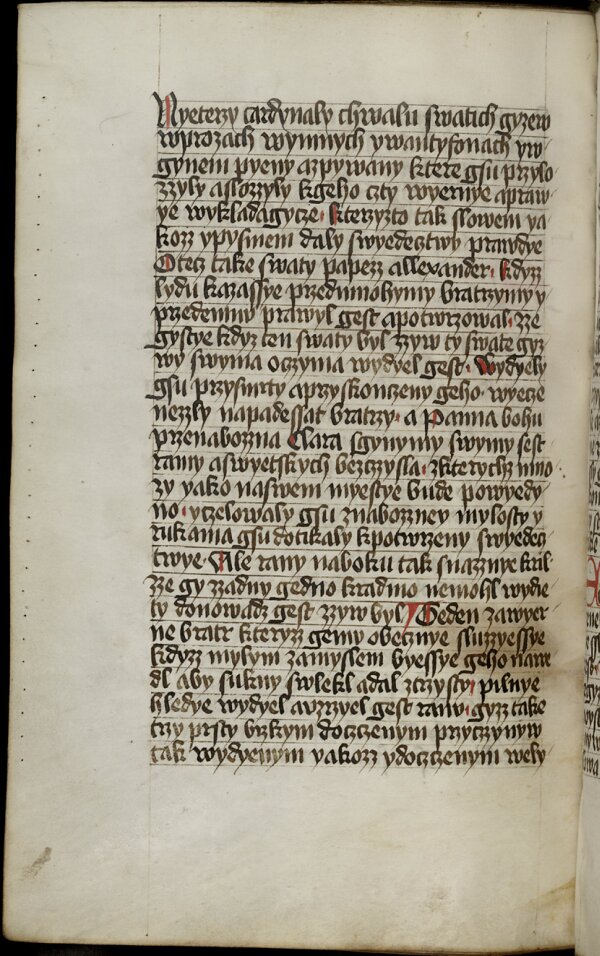 Nyeterzy cardynaly chwalu swatich gyzew
wprozach wymnych ywantyfonach yw
gynem pyeny azpywany ktere gsu przylo
zzyly aslozzyly kgeho czty wyernye apraw
ye wykladagycze· kterzyzto tak slowem ya
kozz ypysmem daly swyedecztwy prawdye
Otecz take swaty papezz allexander· kdyzz
lydu kazassye przedmnohymy bratrzymy y
przedemnu prawyl gest apotwrzowal· zze
gystye kdyz ten swaty byl zzyw ty swate gyz
wy swyma oczyma wydyel gest· Wydyely
gsu przysmrty apryskonczeny geho· wyecze
nezzly napadessat bratrzy· a Panna bohu
przenabozna Clara sgynymy swymy sest
ramy aswyetskych bezczysla· zkterychz mno
zy yako naswem myestye bude powyedy
no· yczelowaly gsu znabozzney mylosty y
rukama gsu dotikaly kpotwrzeny swyedecz
twye· Ale rany naboku tak snaznye kril
zze gy zzadny gedno kradmo nemohl wydie
ty donowadz gest zzyw byl Geden zawyer
ne bratr kteryzz gemu obecznye sluzzyessye
kdyzz mylym zamyslem byessye geho nawe
dl aby sukny swlekl adal zczysty· pilnye
hledye wydyel auzrzyel gest ranu· gyzz take
trzy prsty brzkym doczczenym przyczynyw
tak wydyenym yakozz ydoczczenym wely